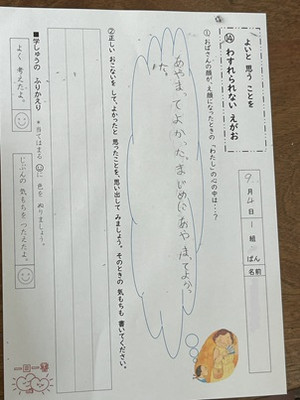 よいと 思う ことを
⑭ わすれられない えがお
9月4日 1組 ばん 名前
①おばさんの顔が、え顔になったときの「わたし」の心の中は…?
あやまってよかった。まじめにあやまってよかっ
た。
②正しい おこないを して、よかったと 思ったことを、思い出して みましょう。そのときの 気もちも 書いてください。
■学しゅうの ふりかえり *当てはまる ☺に 色を ぬりましょう。
よく 考えたよ。
じぶんの 気もちを つたえたよ。